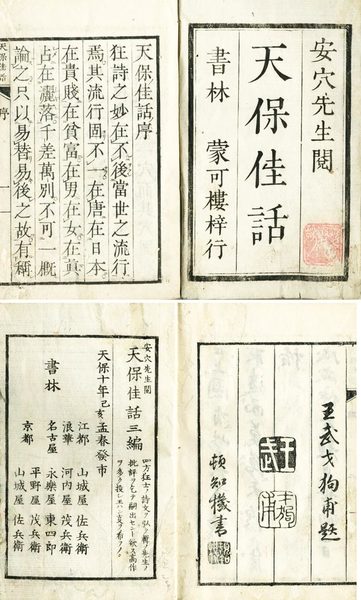 安穴先生閲
天保佳話
書林 蒙可樓梓行
天保佳話序
狂詩之妙在不後當世之流行
焉其流行固不一在唐在日本
在貴賤在貧富在男在女在眞
占在灑落千差萬別不可一概
論之只以易替易後之故有稱
天保佳話 序 一
王武戈狗甫題
頓知機書
安穴先生閲
天保佳話三編
四方狂士ノ詩文ヲ弘ク輯メ先生ノ
天保十年己亥孟春發市
書林
江都 山城屋 佐兵衛
浪華 河内屋 茂兵衛
名古屋 永樂屋 東四郎
平野屋 茂兵衛
京都 山城屋 佐兵衛